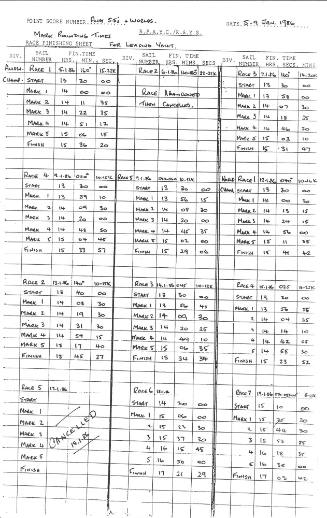 POINT SCORE NUMBER. Aus 5.5's & Worlds. DATE. 5-9 Jan. 1986
Mark Rounding Times R.P.A.Y.C./R.Y.C.
RACE FINISHING SHEET For Leading Yacht.
DIV. SAIL NUMBER FIN. TIME HRS. MINS. SEC.
DIV. SAIL NUMBER FIN. TIME HRS. MINS SECS
DIV. SAIL NUMBER FIN. TIME HRS. SECS. MINS
Race 1 5-1-86 160°
Champ. Start 13 30 00
Mark 1 14 00 00
Mark 2 14 11 35
Mark 3 14 22 35
Mark 4 14 51 17
Mark 5 15 06 15
Finish 15 36 20
Race 2
Race Abandoned
Then Cancelled.
Race 3 7-1-86 140°
Start 13 30 00
Mark 1 13 58 00
Mark 2 14 07 30
Mark 3 14 18 25
Mark 4 14 46 20
Mark 5 15 03 10
Finish 15 31 47
Race 4 9-1-86
Start 13 30 00
Mark 1 13 59 10
Mark 2 14 09 30
Mark 3 14 20 00
Mark 4 14 48 50
Mark 5 15 04 45
Finish 15 33 57
Race 5 9-1-86
Start 13 30 00
Mark 1 13 56 15
Mark 2 14 08 30
Mark 3 14 20 00
Mark 4 14 45 35
Mark 5 15 02 00
Finish 15 29 06
Race 1
Start 13 30 00
Mark 1 14 00 30
Mark 2 14 13 15
Mark 3 14 24 15
Mark 4 14 56 00
Mark 5 15 11 35
Finish 15 44 42
Race 2 13-1-86
Start 13 40 00
Mark 1 14 08 30
Mark 2 14 19 30
Mark 3 14 31 30
Mark 4 14 59 15
Mark 5 15 17 40
Finish 15 45 27
Race 3 14-1-86
Start 13 30 00
Mark 1 13 56 45
Mark 2 14 09 30
Mark 3 14 20 25
Mark 4 14 49 10
Mark 5 15 06 35
Finish 15 34 34
Race 4
Start 13 30 00
Mark 1 13 56 35
2 14 04 35
3 14 14 10
4 14 42 05
5 14 55 30
Finish 15 23 52
Race 5
Start
Mark 1
Mark 2
Mark 3
Mark 4
Mark 5
Finish
Cancelled
Race 6
Start 14 30 00
Mark 1 15 06 00
2 15 22 30
3 15 37 20
4 16 15 45
5 16 36 00
Finish 17 21 29
Race 7
Start 15 10 00
Mark 1
2 15 42 30
3 15 52 35
4 16 18 35
5 16 35 00
Finish 17 02 02